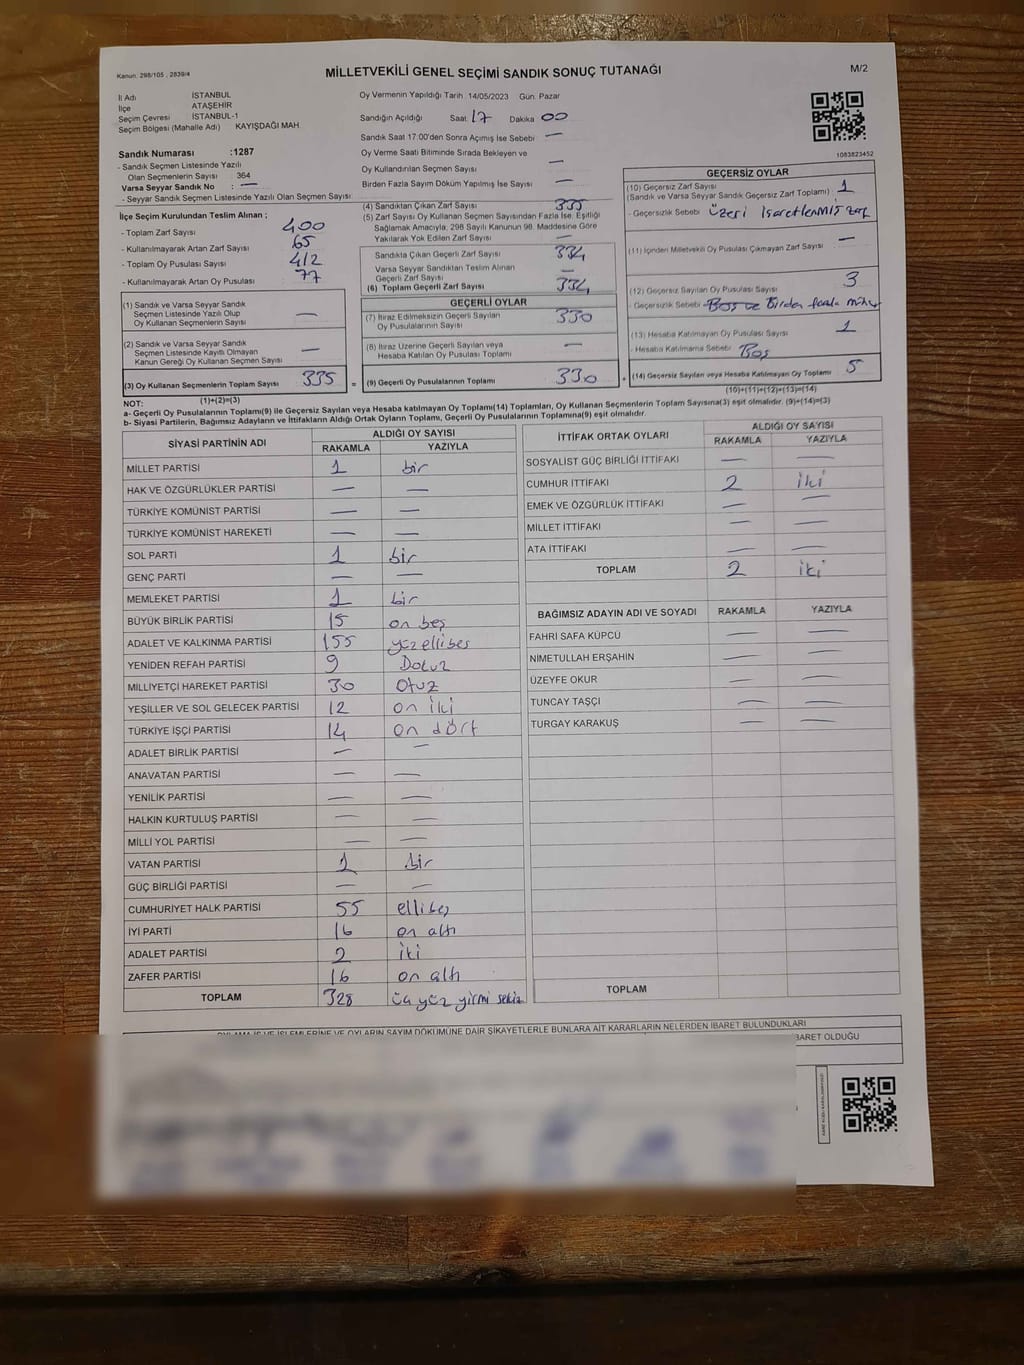 Kanun: 298/105 , 2839/4
MİLLETVEKİLİ GENEL SEÇİMİ SANDIK SONUÇ TUTANAĞI
M/2
İl Adı İSTANBUL
İlçe ATAŞEHİR
Seçim Çevresi İSTANBUL-1
Seçim Bölgesi (Mahalle Adı) KAYIŞDAĞI MAH.
Sandık Numarası :1287
- Sandık Seçmen Listesinde Yazılı
Olan Seçmenlerin Sayısı : 364
Varsa Seyyar Sandık No : —
- Seyyar Sandık Seçmen Listesinde Yazılı Olan Seçmen Sayısı
İlçe Seçim Kurulundan Teslim Alınan ;
- Toplam Zarf Sayısı 400
- Kullanılmayarak Artan Zarf Sayısı 65
- Toplam Oy Pusulası Sayısı 412
- Kullanılmayarak Artan Oy Pusulası 77
(1) Sandık ve Varsa Seyyar Sandık
Seçmen Listesinde Yazılı Olup
Oy Kullanan Seçmenlerin Sayısı —
(2) Sandık ve Varsa Seyyar Sandık
Seçmen Listesinde Kayıtlı Olmayan
Kanun Gereği Oy Kullanan Seçmen Sayısı —
(3) Oy Kullanan Seçmenlerin Toplam Sayısı 335
(1)+(2)=(3)
Oy Vermenin Yapıldığı Tarih 14/05/2023 Gün: Pazar
Sandığın Açıldığı Saat 17 Dakika 00
Sandık Saat 17:00'den Sonra Açımış İse Sebebi —
Oy Verme Saati Bitiminde Sırada Bekleyen ve
Oy Kullandırılan Seçmen Sayısı —
Birden Fazla Sayım Döküm Yapılmış İse Sayısı —
(4) Sandıktan Çıkan Zarf Sayısı 335
(5) Zarf Sayısı Oy Kullanan Seçmen Sayısından Fazla İse, Eşitliği
Sağlamak Amacıyla, 298 Sayılı Kanunun 98. Maddesine Göre
Yakılarak Yok Edilen Zarf Sayısı —
Sandıkta Çıkan Geçerli Zarf Sayısı 334
Varsa Seyyar Sandıktan Teslim Alınan
Geçerli Zarf Sayısı —
(6) Toplam Geçerli Zarf Sayısı 334
GEÇERLİ OYLAR
(7) İtiraz Edilmeksizin Geçerli Sayılan
Oy Pusulalarının Sayısı 330
(8) İtiraz Üzerine Geçerli Sayılan veya
Hesaba Katılan Oy Pusulası Toplamı —
= (9) Geçerli Oy Pusulalarının Toplamı 330 +
1083823452
GEÇERSİZ OYLAR
(10) Geçersiz Zarf Sayısı
(Sandık ve Varsa Seyyar Sandık Geçersiz Zarf Toplamı) 1
- Geçersizlik Sebebi Üzeri İşaretlenmiş zarf
(11) İçinden Milletvekili Oy Pusulası Çıkmayan Zarf Sayısı —
(12) Geçersiz Sayılan Oy Pusulası Sayısı 3
- Geçersizlik Sebebi Boş ve Birden fazla mühür
(13) Hesaba Katılmayan Oy Pusulası Sayısı 1
- Hesaba Katılmama Sebebi Boş
(14) Geçersiz Sayılan veya Hesaba Katılmayan Oy Toplamı 5
(10)+(11)+(12)+(13)=(14)
NOT:
a- Geçerli Oy Pusulalarının Toplamı(9) ile Geçersiz Sayılan veya Hesaba Katılmayan Oy Toplamı(14) Toplamları, Oy Kullanan Seçmenlerin Toplam Sayısına(3) eşit olmalıdır. (9)+(14)=(3)
b- Siyasi Partilerin, Bağımsız Adayların ve İttifakların Aldığı Ortak Oyların Toplamı, Geçerli Oy Pusulalarının Toplamına(9) eşit olmalıdır.
SİYASİ PARTİNİN ADI ALDIĞI OY SAYISI
RAKAMLA YAZIYLA
MİLLET PARTİSİ 1 bir
HAK VE ÖZGÜRLÜKLER PARTİSİ — —
TÜRKİYE KOMÜNİST PARTİSİ — —
TÜRKİYE KOMÜNİST HAREKETİ — —
SOL PARTİ 1 bir
GENÇ PARTİ — —
MEMLEKET PARTİSİ 1 bir
BÜYÜK BİRLİK PARTİSİ 15 on beş
ADALET VE KALKINMA PARTİSİ 155 yüzellibeş
YENİDEN REFAH PARTİSİ 9 Dokuz
MİLLİYETÇİ HAREKET PARTİSİ 30 Otuz
YEŞİLLER VE SOL GELECEK PARTİSİ 12 on iki
TÜRKİYE İŞÇİ PARTİSİ 14 on dört
ADALET BİRLİK PARTİSİ — —
ANAVATAN PARTİSİ — —
YENİLİK PARTİSİ — —
HALKIN KURTULUŞ PARTİSİ — —
MİLLİ YOL PARTİSİ — —
VATAN PARTİSİ 1 bir
GÜÇ BİRLİĞİ PARTİSİ — —
CUMHURİYET HALK PARTİSİ 55 ellibeş
İYİ PARTİ 16 on altı
ADALET PARTİSİ 2 iki
ZAFER PARTİSİ 16 on altı
TOPLAM 328 üç yüz yirmi sekiz
İTTİFAK ORTAK OYLARI ALDIĞI OY SAYISI
RAKAMLA YAZIYLA
SOSYALİST GÜÇ BİRLİĞİ İTTİFAKI — —
CUMHUR İTTİFAKI 2 iki
EMEK VE ÖZGÜRLÜK İTTİFAKI — —
MİLLET İTTİFAKI — —
ATA İTTİFAKI — —
TOPLAM 2 iki
BAĞIMSIZ ADAYIN ADI VE SOYADI RAKAMLA YAZIYLA
FAHRİ SAFA KÜPCÜ — —
NİMETULLAH ERŞAHİN — —
ÜZEYFE OKUR — —
TUNCAY TAŞÇI — —
TURGAY KARAKUŞ — —
TOPLAM
OYLAMA İŞ VE İŞLEMLERİNE VE OYLARIN SAYIM DÖKÜMÜNE DAİR ŞİKAYETLERLE BUNLARA AİT KARARLARIN NELERDEN İBARET BULUNDUKLARI
İBARET OLDUĞU